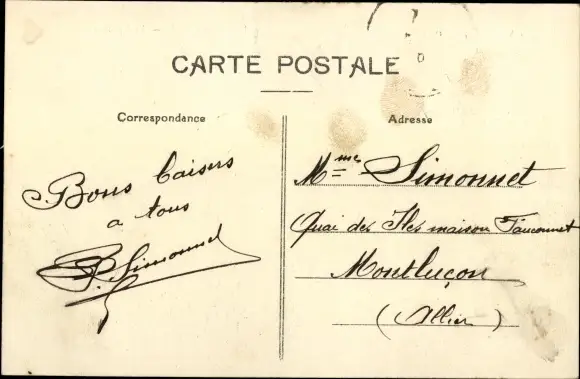 CARTE POSTALE
Correspondance
Bons baisers
a tous
P. Simonnet
Adresse
Mme Simonnet
Quai des Iles maison Fauconnet
Montluçon
(Allier)